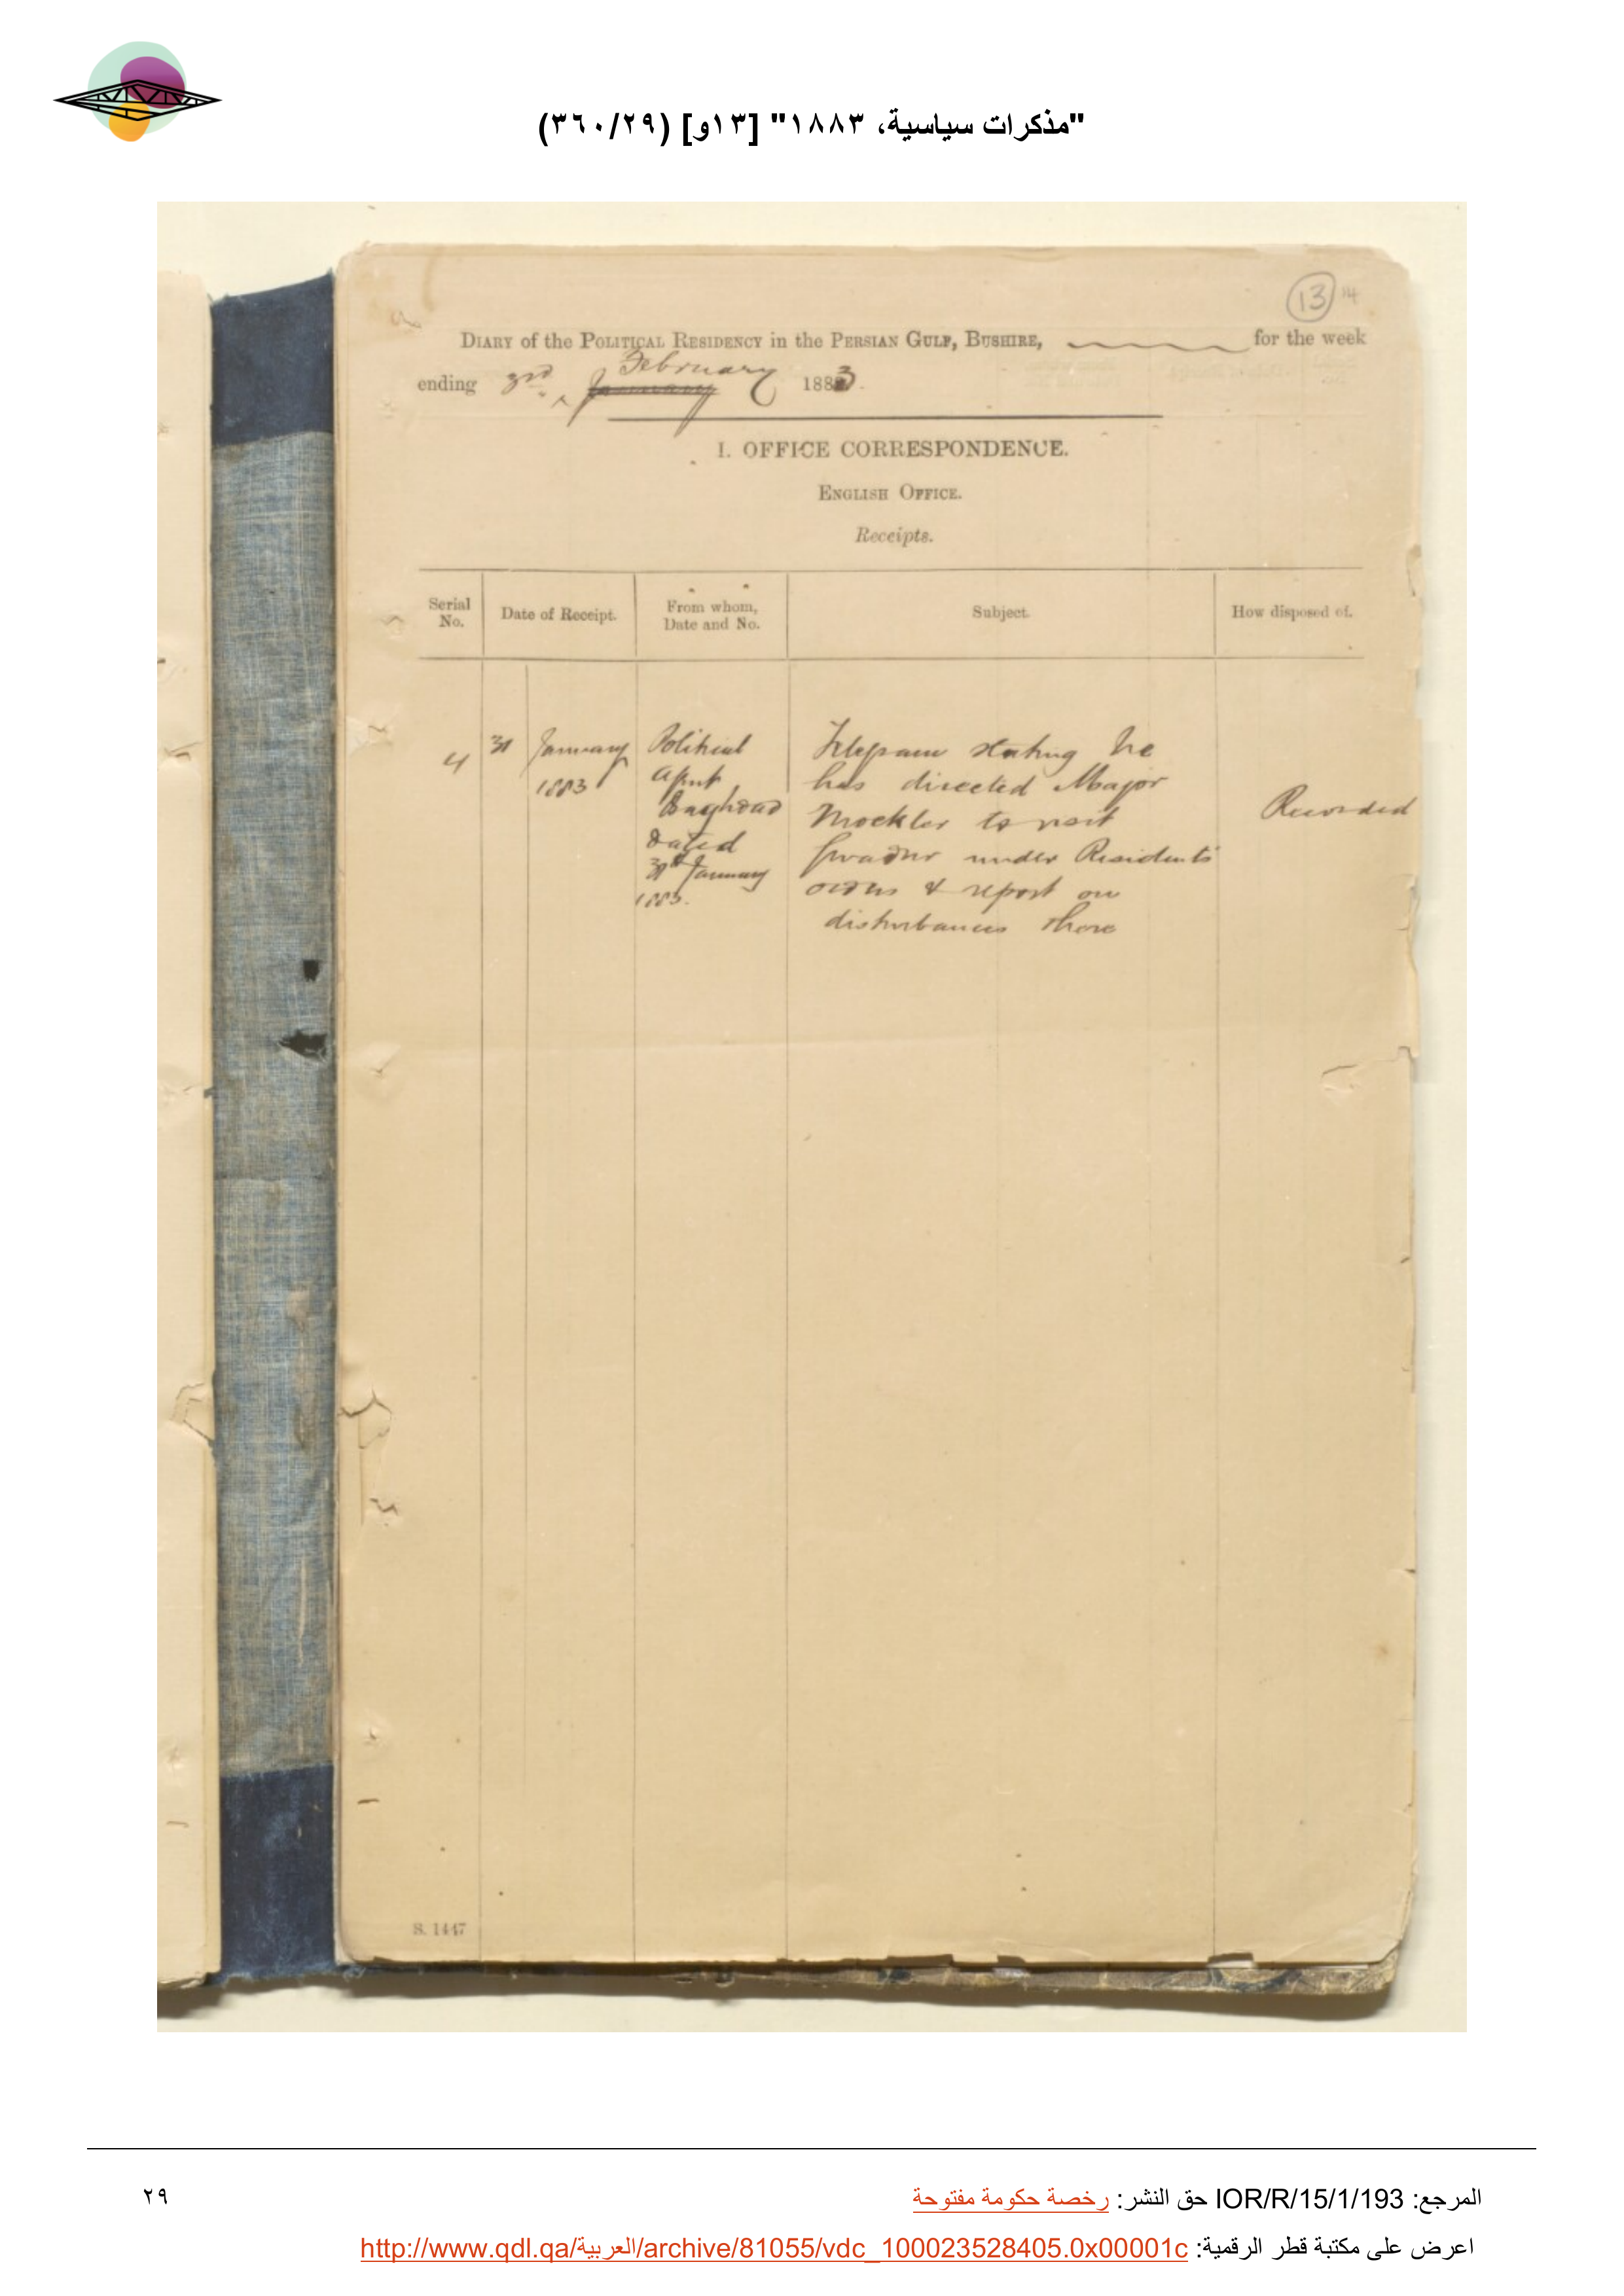 "مذكرات سياسية، ١٨٨٣" [١٣و] (٣٦٠/٢٩)
13 14
DIARY of the POLITICAL RESIDENCY in the PERSIAN GULF, BUSHIRE, for the week
February
ending 3rd January 1883.
I. OFFICE CORRESPONDENCE.
ENGLISH OFFICE.
Receipts.
Serial No.
Date of Receipt.
From whom, Date and No.
Subject.
How disposed of.
4
31 January
1883
Political
Agent
Baghdad
Dated
31st January
1883.
Telegram stating he
has directed Major
Mockler to visit
Gwadur under Residents'
orders & report on
disturbances there
Recorded
S. 1447
المرجع: IOR/R/15/1/193 حق النشر: رخصة حكومة مفتوحة
٢٩
اعرض على مكتبة قطر الرقمية: http://www.qdl.qa/العربية/archive/81055/vdc_100023528405.0x00001c